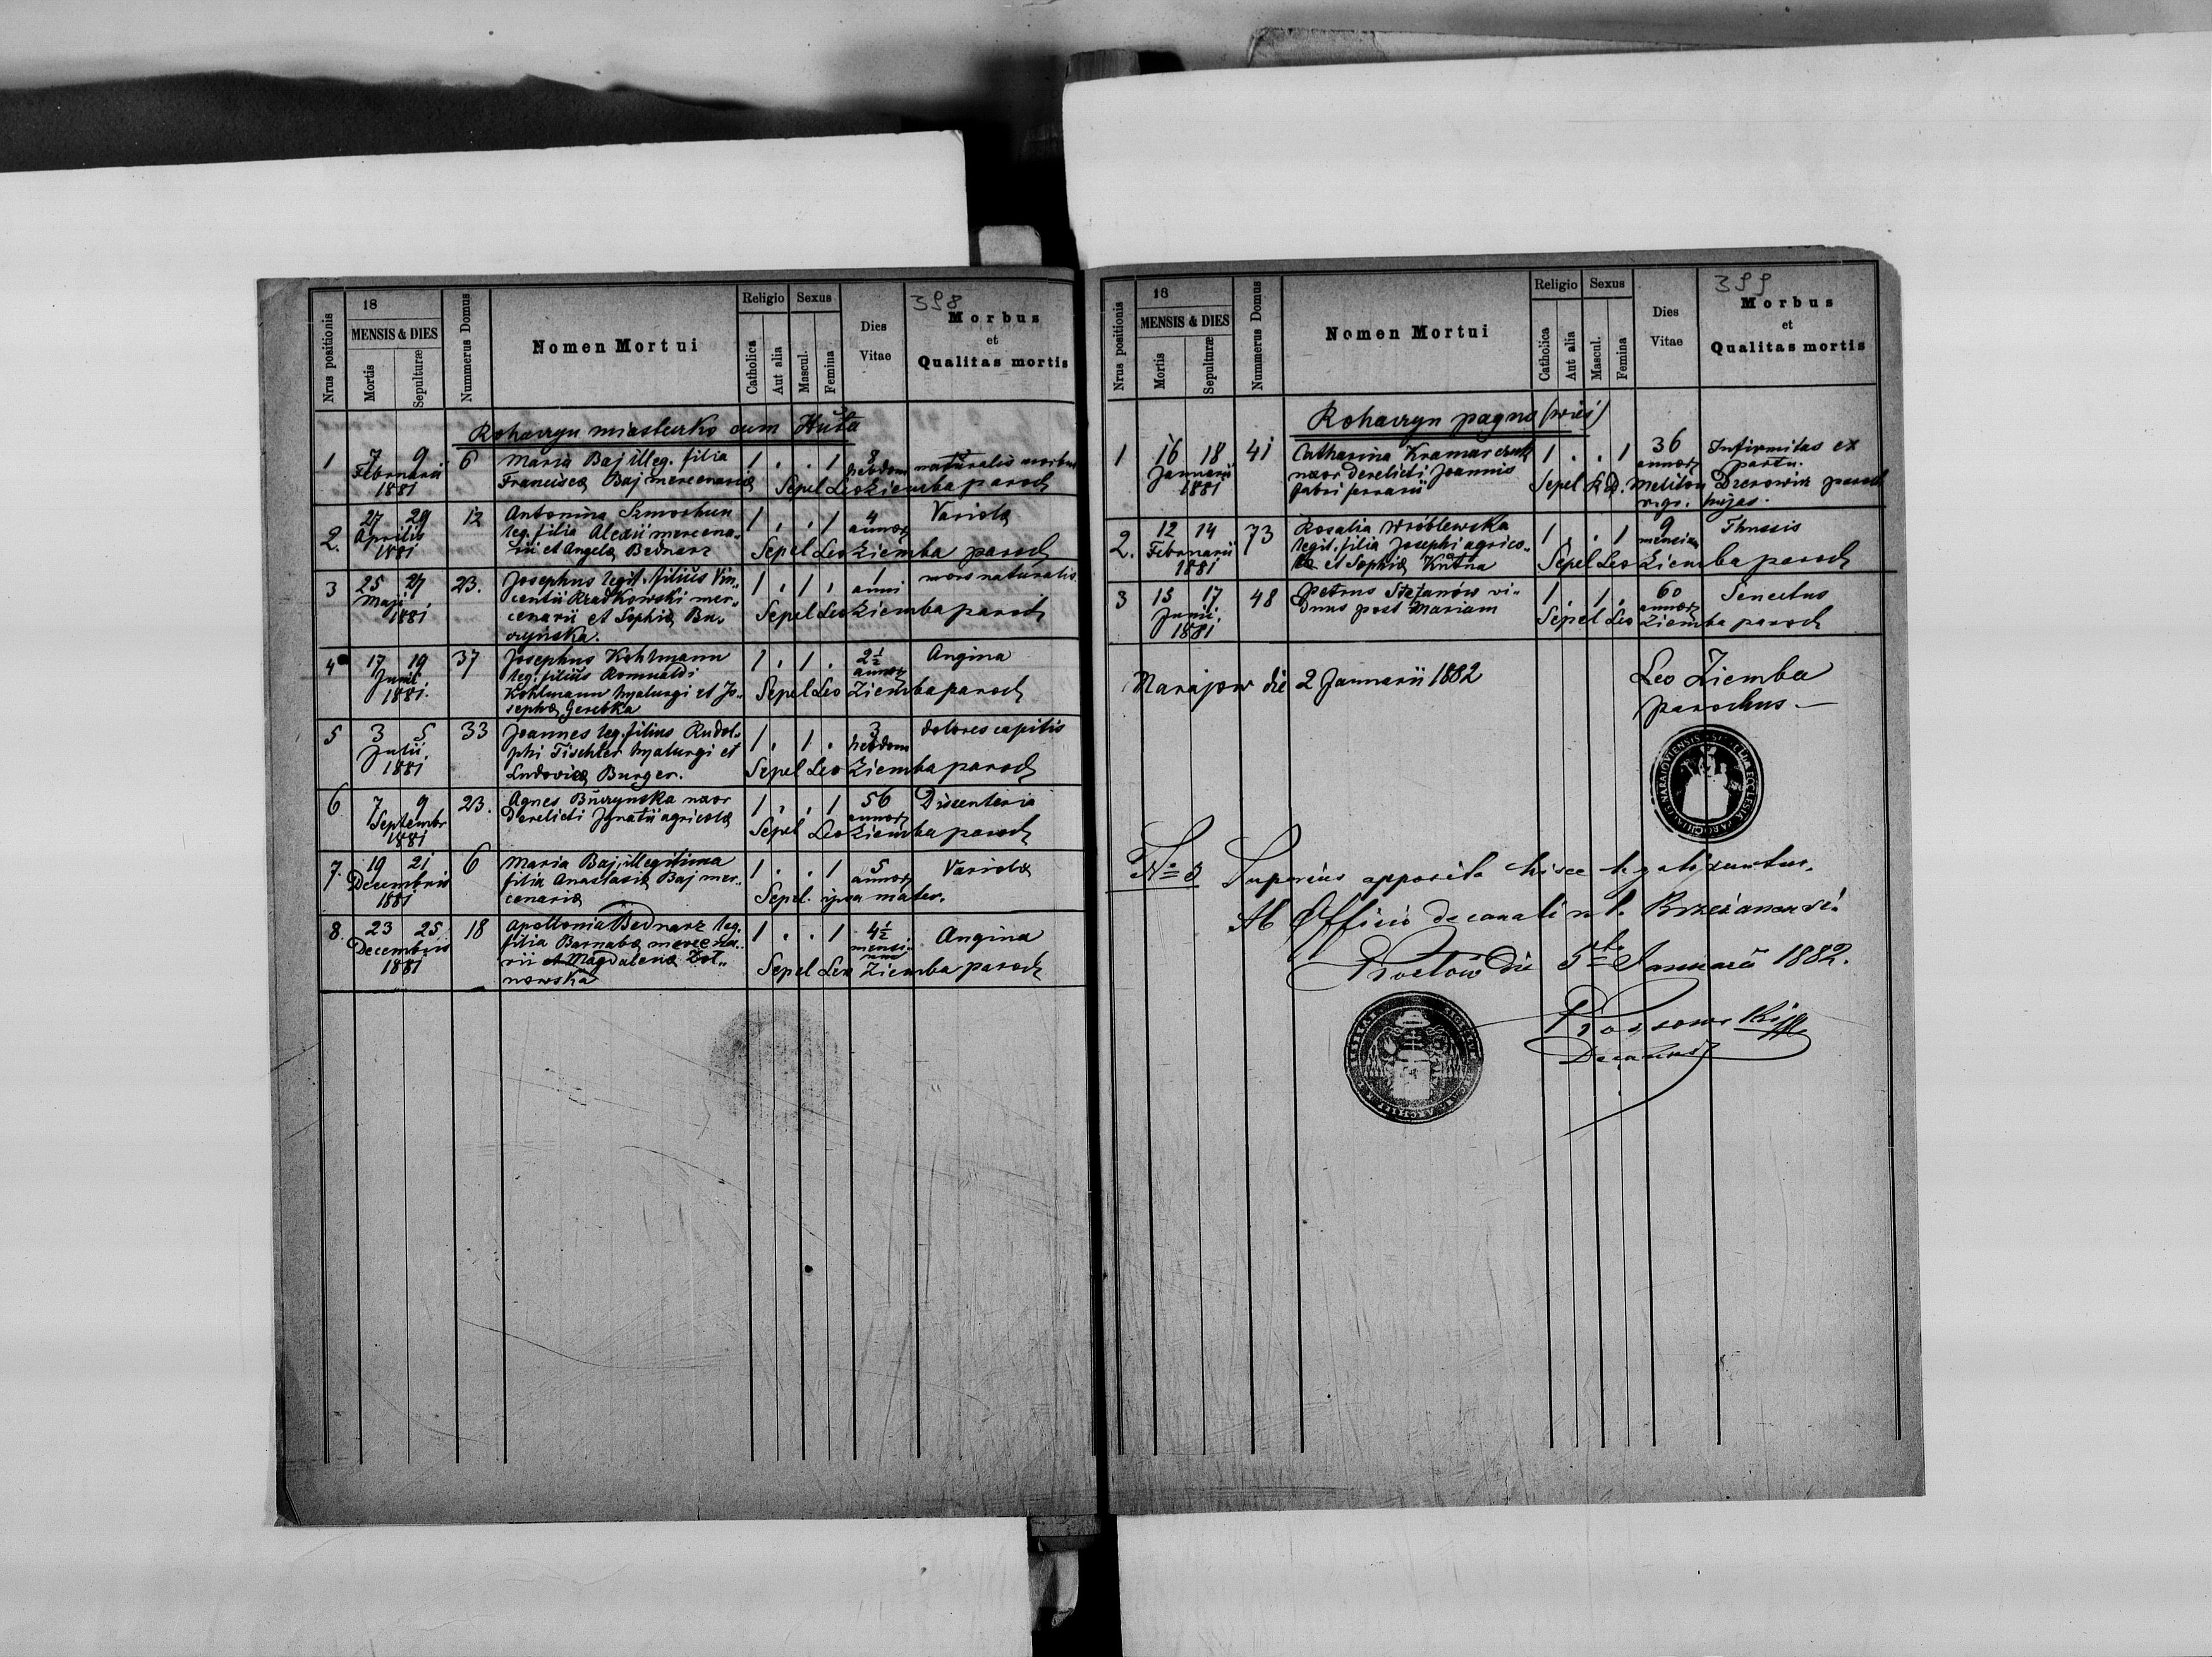 398
Nrus positionis
18
MENSIS & DIES
Mortis
Sepulturæ
Nummerus Domus
Nomen Mortui
Religio
Catholica
Aut alia
Sexus
Mascul.
Femina
Dies Vitae
Morbus
et
Qualitas mortis
Rohaczyn miasteczko cum Huta
1 7 9 6 Maria Baj illeg. filia 1 . . 1 8 naturalis morbus
Februarii Francisca Baj mercenaria hebdom
1881 Sepel Leo Ziemba paroch
2. 27 29 12 Antonina Szmorhun 1 . . 1 4 Variola
Aprilis leg. filia Alexii mercena- annor
1881 rii et Angela Bednarz Sepel Leo Ziemba paroch
3 25 27 23. Josephus legit. filius Vin- 1 . 1 . 1 mors naturalis
Maji centii Rradkowski mer- anni
1881 cenarii et Sophia Bu- Sepel Leo Ziemba paroch
czyńska.
4 17 19 37 Josephus Kohlmann 1 . 1 . 2½ Angina
Junii leg. filius Romualdi annor
1881. Kohlmann hyalurgi et Jo- Sepel Leo Ziemba paroch
sepha Gerebka
5 3 5 33 Joannes leg. filius Rudol- 1 . 1 . 3 dolores capitis
Julii phi Tischler hyalurgi et hebdom
1881 Ludovica Burger. Sepel Leo Ziemba paroch
6 7 9 23. Agnes Buczynska uxor 1 . . 1 56 Dissenteria
Septembr derelicti Ignatii agricola annor
1881 Sepel Leo Ziemba paroch
7. 19 21 6 Maria Baj, illegitima 1 . . 1 5 Variola
Decembris filia Anastasia Baj mer- annor
1881 cenaria Sepel. ipsa mater.
8 23 25 18 Apollonia Bednarz leg. 1 . . 1 4½ Angina
Decembris filia Barnaba mercena- mensi-
1881 rii et Magdalena Zot- um
nowska Sepel Leo Ziemba paroch
399
Nrus positionis
18
MENSIS & DIES
Mortis
Sepulturæ
Nummerus Domus
Nomen Mortui
Religio
Catholica
Aut alia
Sexus
Mascul.
Femina
Dies Vitae
Morbus
et
Qualitas mortis
Rohaczyn pagus (wieś)
1 16 18 41 Catharina Kramarczuk 1 . . 1 36 Infirmitas ex
Januarii uxor derelicti Joannis annor partu.
1881 fabri ferrarii Sepel R.D. Meliton Dzerowicz paroch
r. gr. hujas.
2. 12 14 73 Rosalia Wróblewska 1 . . 1 9 Thussis
Februarii legit. filia Josephi agrico- mensium
1881 la et Sophia Kutna Sepel Leo Ziemba paroch
3 15 17 48 Petrus Stefanów vi- 1 . 1 . 60 Senectus
Junii. duus post Mariam annor
1881 Sepel Leo Ziemba paroch
Narajow die 2 Januarii 1882
Leo Ziemba
parochus
No 3 Superius apposita hisce legalizantur.
Ab Officio decanali r. l. Brzeżanensi.
die 5ta Januarii 1882.
Decanus